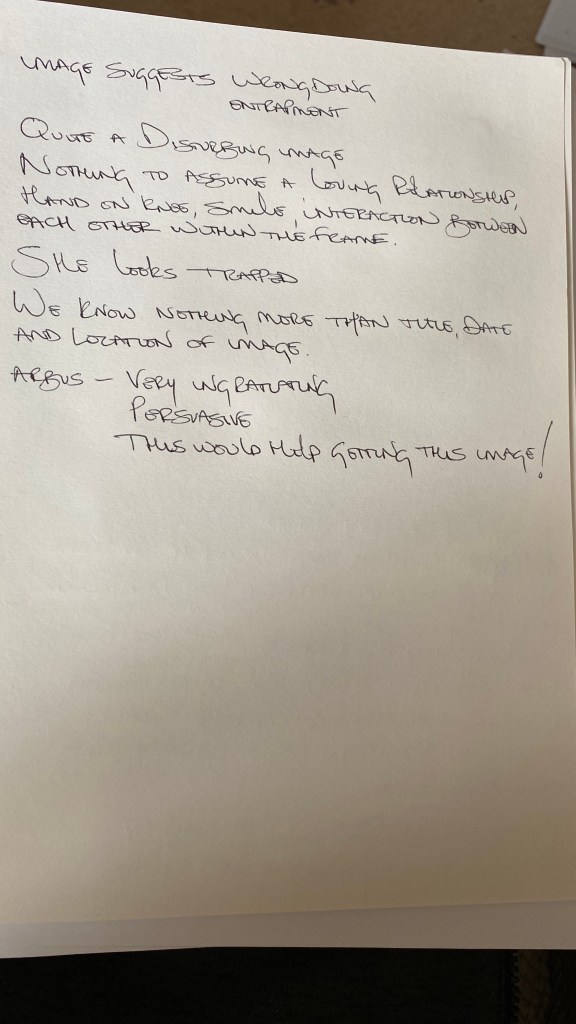 IMAGE SUGGESTS WRONGDOING
ENTRAPMENT
QUITE A DISTURBING IMAGE
NOTHING TO ASSUME A LOVING RELATIONSHIP,
HAND ON KNEE, SMILE, INTERACTION BETWEEN
EACH OTHER WITHIN THE FRAME.
SHE LOOKS TRAPPED
WE KNOW NOTHING MORE THAN TITLE, DATE
AND LOCATION OF IMAGE.
ARBUS – VERY INGRATIATING
PERSUASIVE
THIS WOULD HELP GETTING THIS IMAGE!